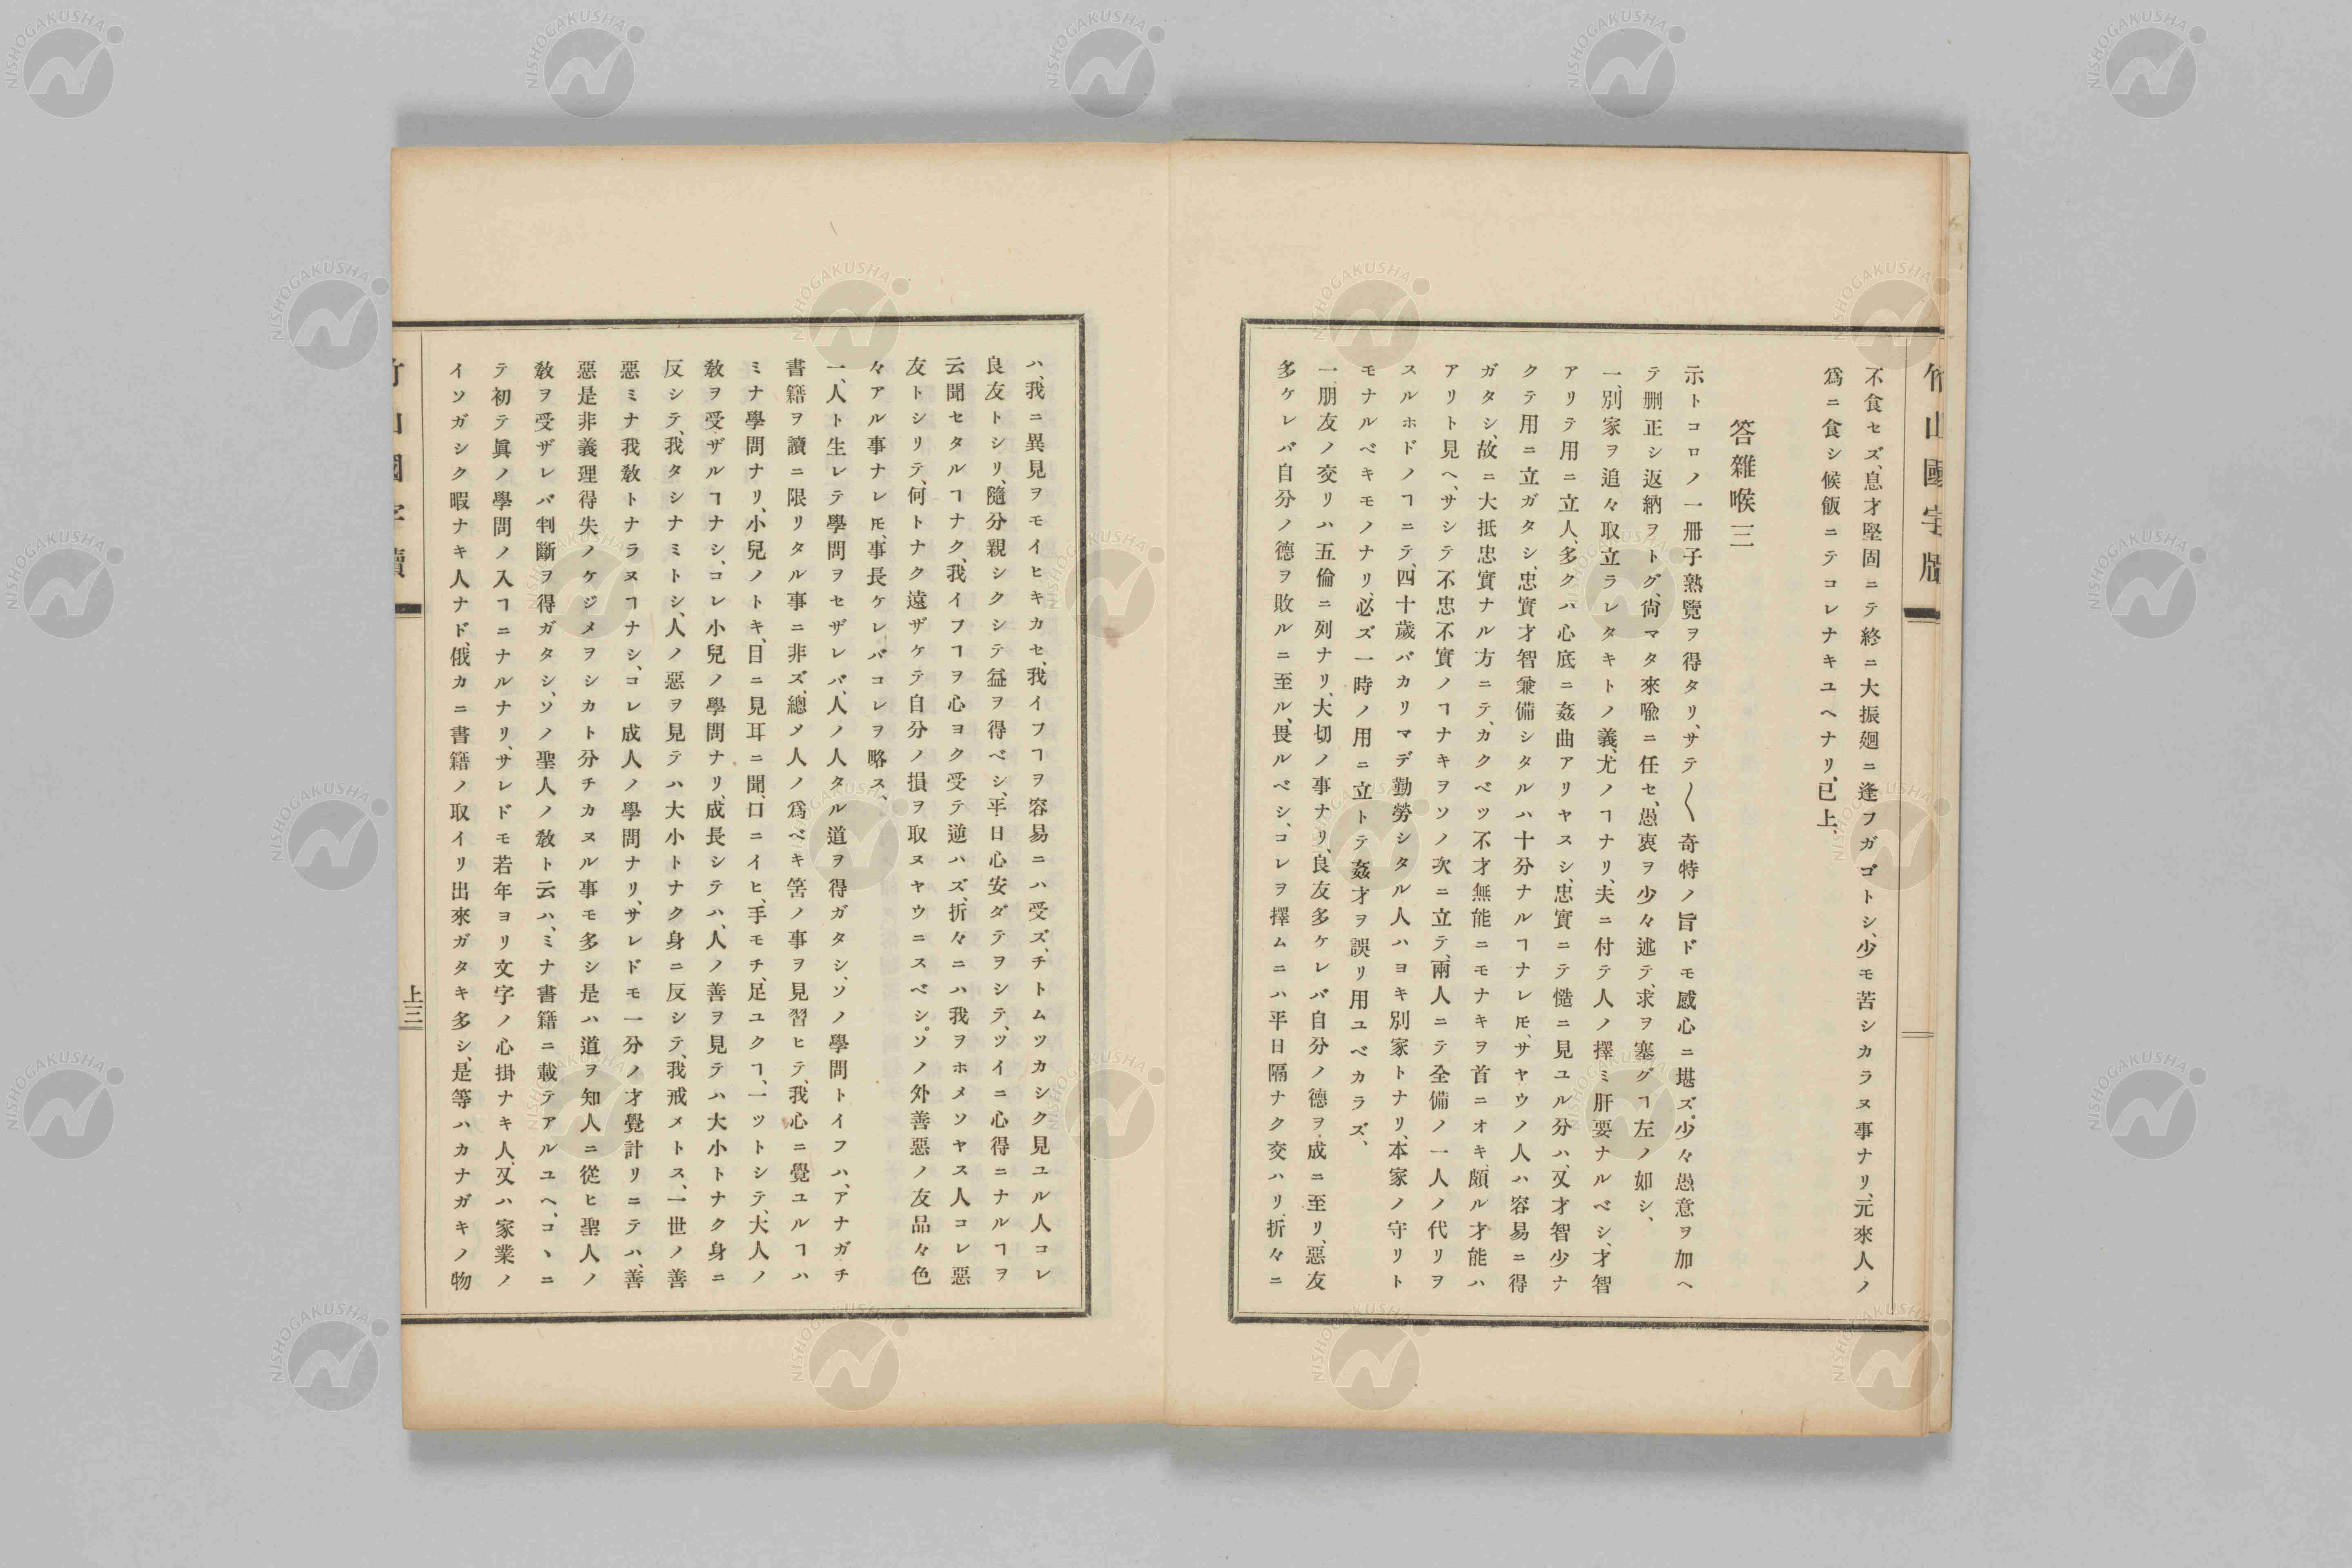 竹山國字牘
不食セズ、息才堅固ニテ終ニ大振廻ニ逢フガゴトシ、少モ苦シカラヌ事ナリ、元來人ノ
爲ニ食シ候飯ニテコレナキユヘナリ、已上、
答雜喉三
示トコロノ一冊子熟覽ヲ得タリ、サテ〱奇特ノ旨ドモ感心ニ堪ズ。少々愚意ヲ加ヘ
テ删正シ返納ヲトグ、尙マタ來喩ニ任セ、愚衷ヲ少々述テ、求ヲ塞グヿ左ノ如シ、
一、別家ヲ追々取立ラレタキトノ義、尤ノヿナリ、夫ニ付テ人ノ擇ミ肝要ナルベシ、才智
アリテ用ニ立人、多クハ心底ニ姦曲アリヤスシ、忠實ニテ慥ニ見ユル分ハ、又才智少ナ
クテ用ニ立ガタシ、忠實才智兼備シタルハ十分ナルヿナレ𪜈、サヤウノ人ハ容易ニ得
ガタシ、故ニ大抵忠實ナル方ニテ、カクベツ不才無能ニモナキヲ首ニオキ、頗ル才能ハ
アリト見ヘ、サシテ不忠不實ノヿナキヲソノ次ニ立テ、兩人ニテ全備ノ一人ノ代リヲ
スルホドノヿニテ、四十歲バカリマデ勤勞シタル人ハヨキ別家トナリ、本家ノ守リト
モナルベキモノナリ、必ズ一時ノ用ニ立トテ姦才ヲ誤リ用ユベカラズ、
一、朋友ノ交リハ五倫ニ列ナリ、大切ノ事ナリ、良友多ケレバ自分ノ德ヲ成ニ至リ、惡友
多ケレバ自分ノ德ヲ敗ルニ至ル、畏ルベシ、コレヲ擇ムニハ平日隔ナク交ハリ、折々ニ
ハ、我ニ異見ヲモイヒキカセ、我イフヿヲ容易ニハ受ズ、チトムツカシク見ユル人コレ
良友トシリ、隨分親シクシテ益ヲ得ベシ、平日心安ダテヲシテ、ツイニ心得ニナルヿヲ
云聞セタルヿナク、我イフヿヲ心ヨク受テ逆ハズ、折々ニハ我ヲホメソヤス人コレ惡
友トシリテ、何トナク遠ザケテ自分ノ損ヲ取ヌヤウニスベシ。ソノ外善惡ノ友品々色
々アル事ナレ𪜈、事長ケレバコレヲ略ス、
一、人ト生レテ學問ヲセザレバ、人ノ人タル道ヲ得ガタシ、ソノ學問トイフハ、アナガチ
書籍ヲ讀ニ限リタル事ニ非ズ、總メ人ノ爲ベキ筈ノ事ヲ見習ヒテ、我心ニ覺ユルヿハ
ミナ學問ナリ、小兒ノトキ、目ニ見耳ニ聞、口ニイヒ、手モチ、足ユクヿ、一ツトシテ、大人ノ
敎ヲ受ザルヿナシ、コレ小兒ノ學問ナリ、成長シテハ、人ノ善ヲ見テハ大小トナク身ニ
反シテ、我タシナミトシ、人ノ惡ヲ見テハ大小トナク身ニ反シテ、我戒メトス、一世ノ善
惡ミナ我敎トナラヌヿナシ、コレ成人ノ學問ナリ、サレドモ一分ノ才覺計リニテハ、善
惡是非義理得失ノケジメヲシカト分チカヌル事モ多シ是ハ道ヲ知人ニ從ヒ聖人ノ
敎ヲ受ザレバ判斷ヲ得ガタシ、ソノ聖人ノ敎ト云ハ、ミナ書籍ニ載テアルユヘ、コヽニ
テ初テ眞ノ學問ノ入ヿニナルナリ、サレドモ若年ヨリ文字ノ心掛ナキ人、又ハ家業ノ
イソガシク暇ナキ人ナド、俄カニ書籍ノ取イリ出來ガタキ多シ、是等ハカナガキノ物
上三